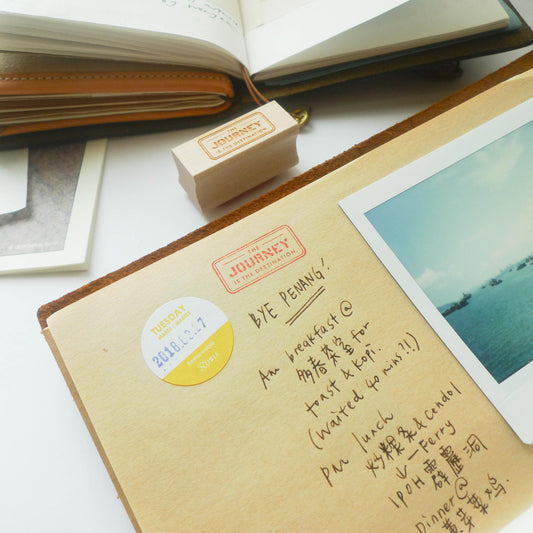 THE
JOURNEY
IS THE DESTINATION.
THE
JOURNEY
IS THE DESTINATION.
TUESDAY
2018.03.27
BYE PENANG!
Am breakfast @
多春茶室 for
toast & kopi.
(waited 40 mins?!)
pm lunch
炒粿条 & cendol
↓ — Ferry
IPOH 霹雳洞
Dinner @
黄芽菜鸡.